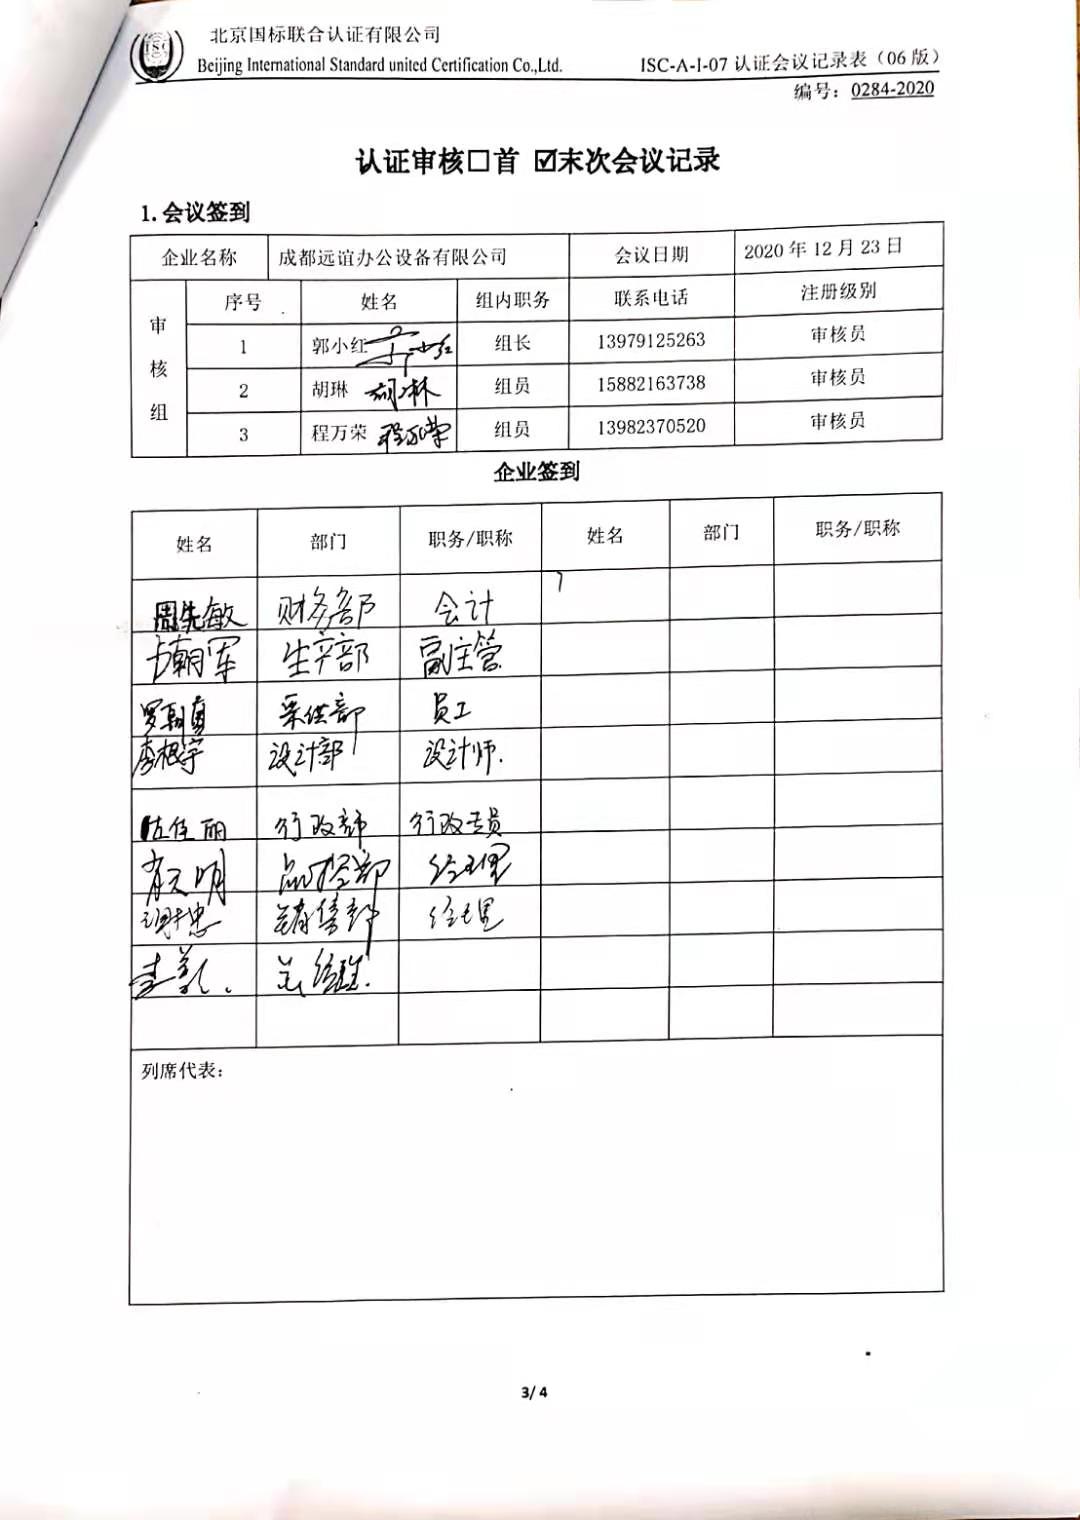 ISC
北京国标联合认证有限公司
Beijing International Standard united Certification Co.,Ltd.
ISC-A-I-07 认证会议记录表（06 版）
编号：0284-2020
认证审核☐首 ☑末次会议记录
1. 会议签到
企业名称 成都远谊办公设备有限公司 会议日期 2020 年 12 月 23 日
审核组
序号 姓名 组内职务 联系电话 注册级别
1 郭小红 组长 13979125263 审核员
2 胡琳 胡琳 组员 15882163738 审核员
3 程万荣 程万荣 组员 13982370520 审核员
企业签到
姓名 部门 职务/职称 姓名 部门 职务/职称
周先敏 财务部 会计
卢朝军 生产部 副主管
罗朝勇 采供部 员工
李根宇 设计部 设计师.
伍佳丽 行政部 行政专员
肖天明 品控部 经理
谢忠 销售部 经理
总经理.
列席代表：
3/ 4